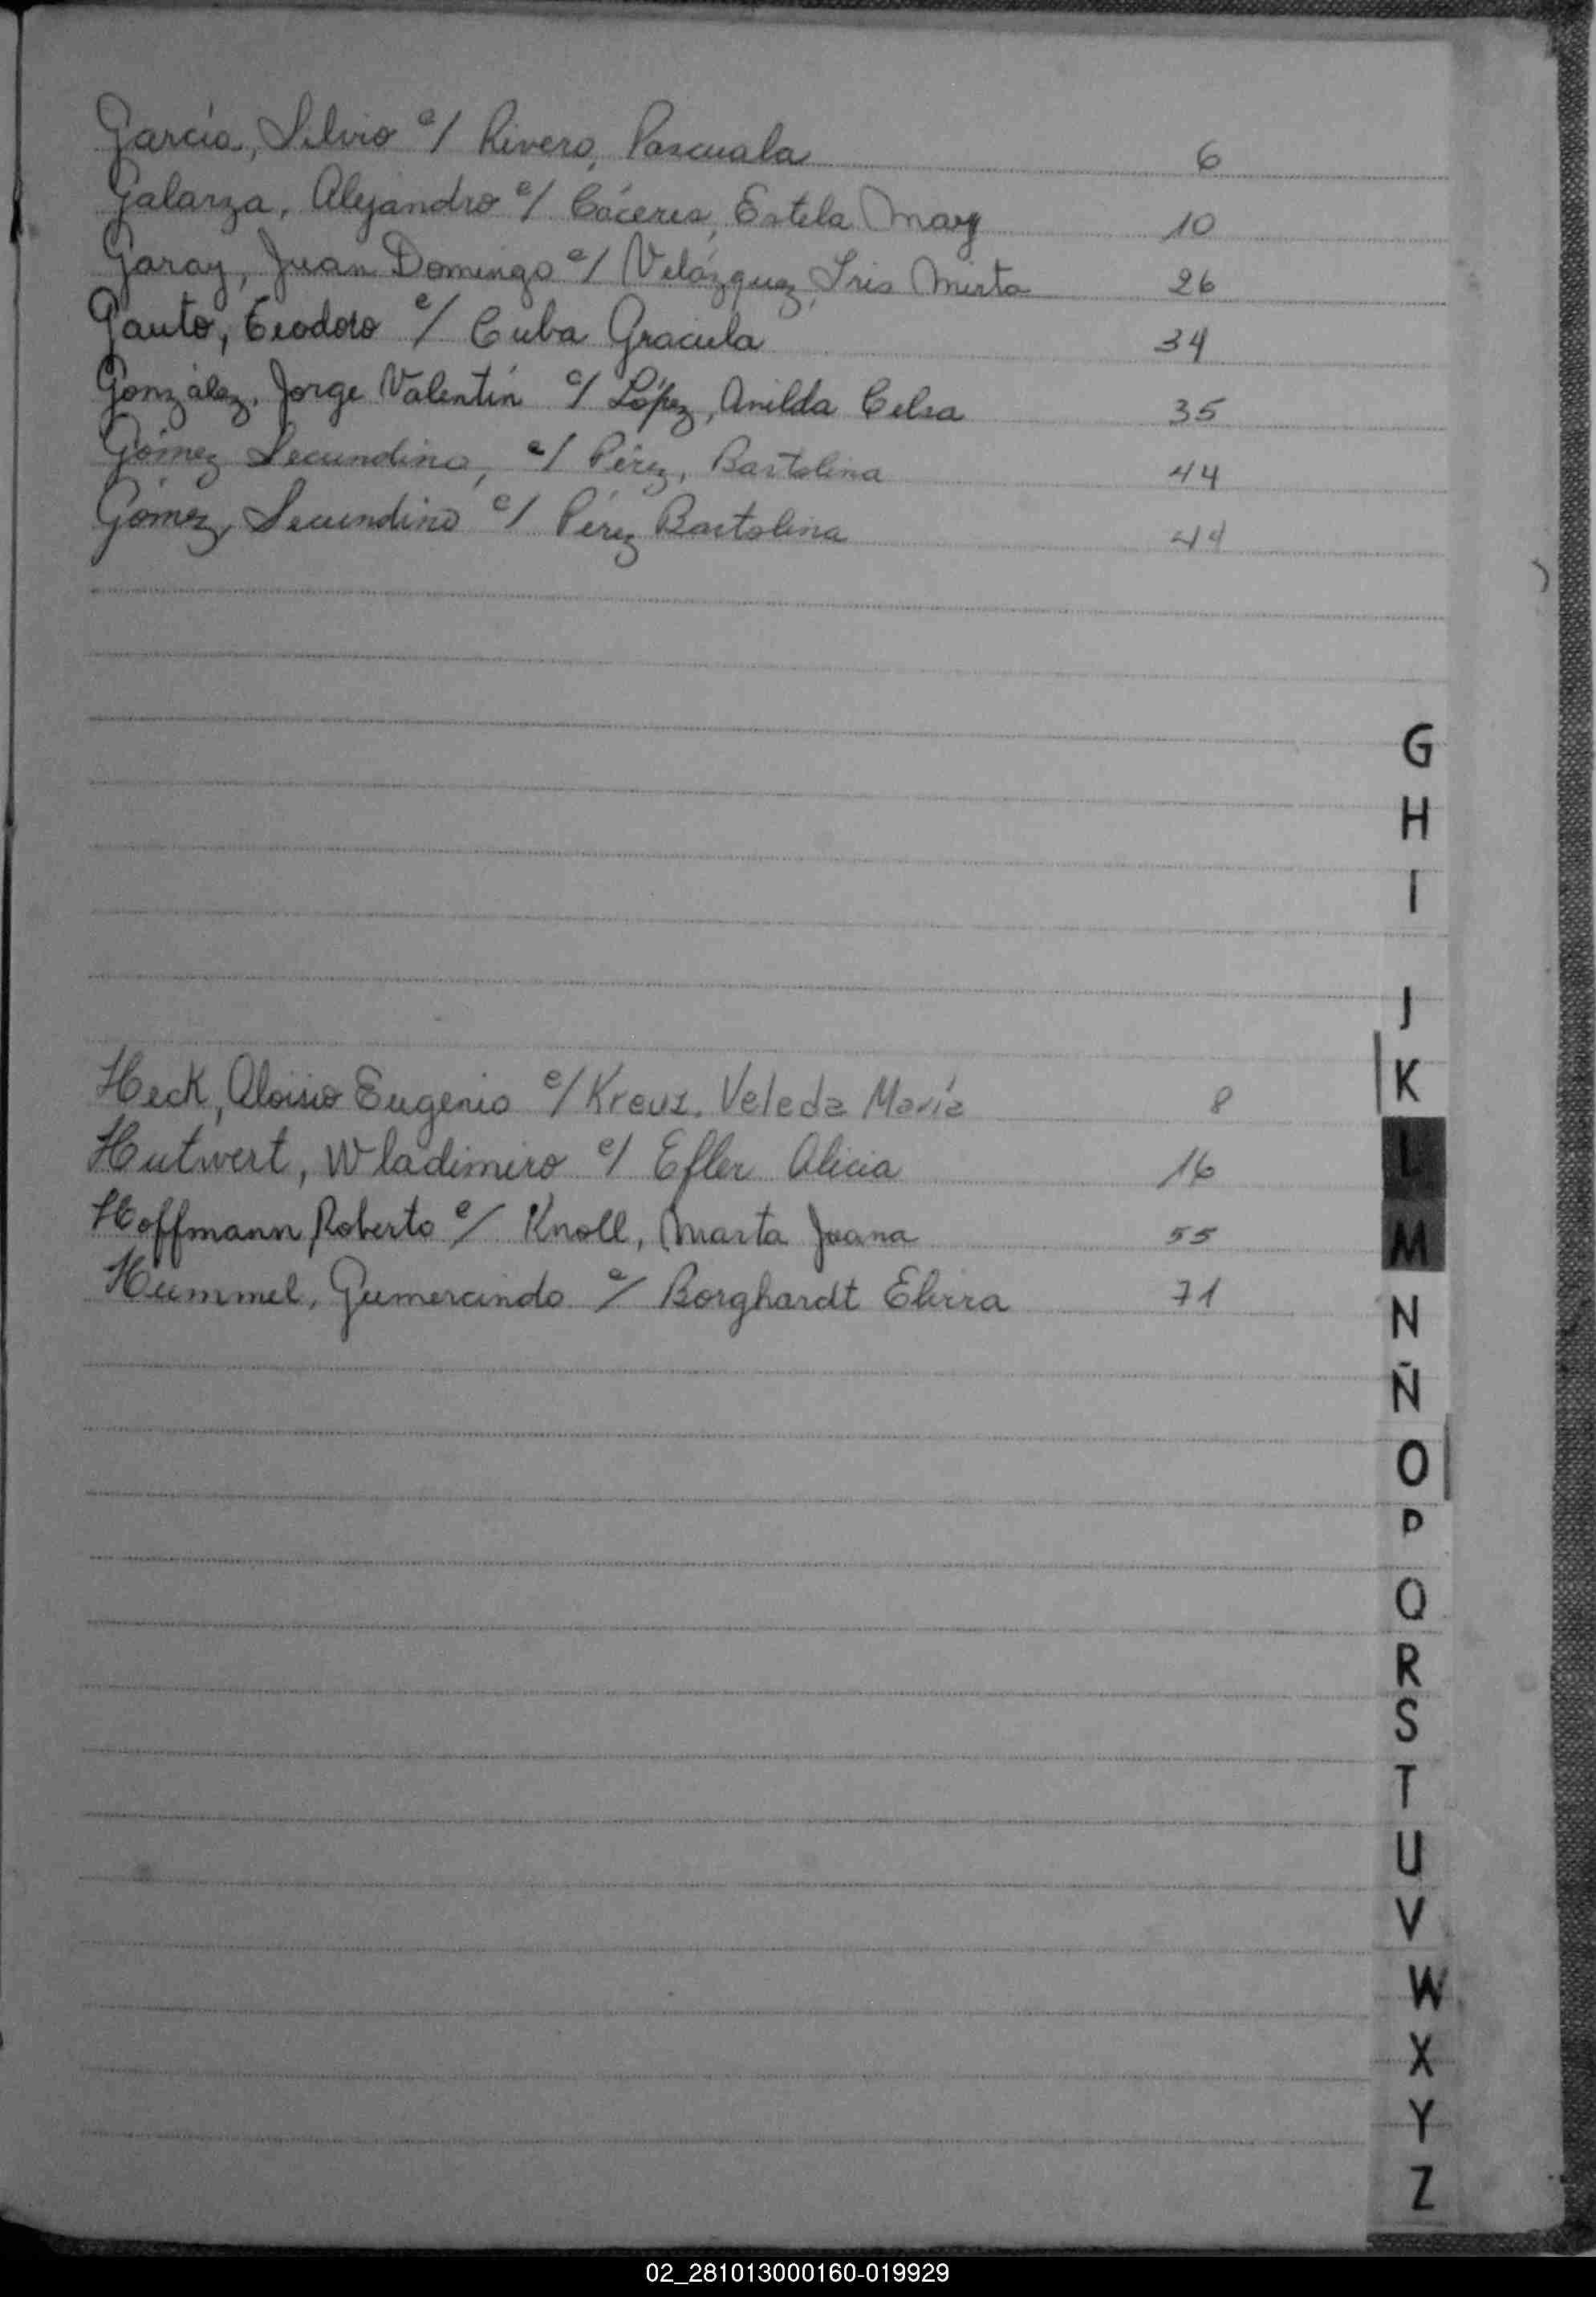 García, Silvio c/ Rivero, Pascuala 6
Galarza, Alejandro c/ Cáceres, Estela Mary 10
Garay, Juan Domingo c/ Velázquez, Iris Mirta 26
Gauto, Teodoro c/ Cuba Graciela 34
González, Jorge Valentín c/ López, Anilda Celsa 35
Gómez Secundino, c/ Pérez, Bartolina 44
Gómez, Secundino c/ Pérez Bartolina 44
G
H
I
J
Heck, Aloisio Eugenio c/ Kreuz, Veleda María 8
K
Hutwert, Wladimiro c/ Efler Alicia 16
L
Hoffmann, Roberto c/ Knoll, Marta Juana 55
M
Hummel, Gumercindo c/ Borghardt Elirra 71
N
Ñ
O
P
Q
R
S
T
U
V
W
X
Y
Z
02_281013000160-019929